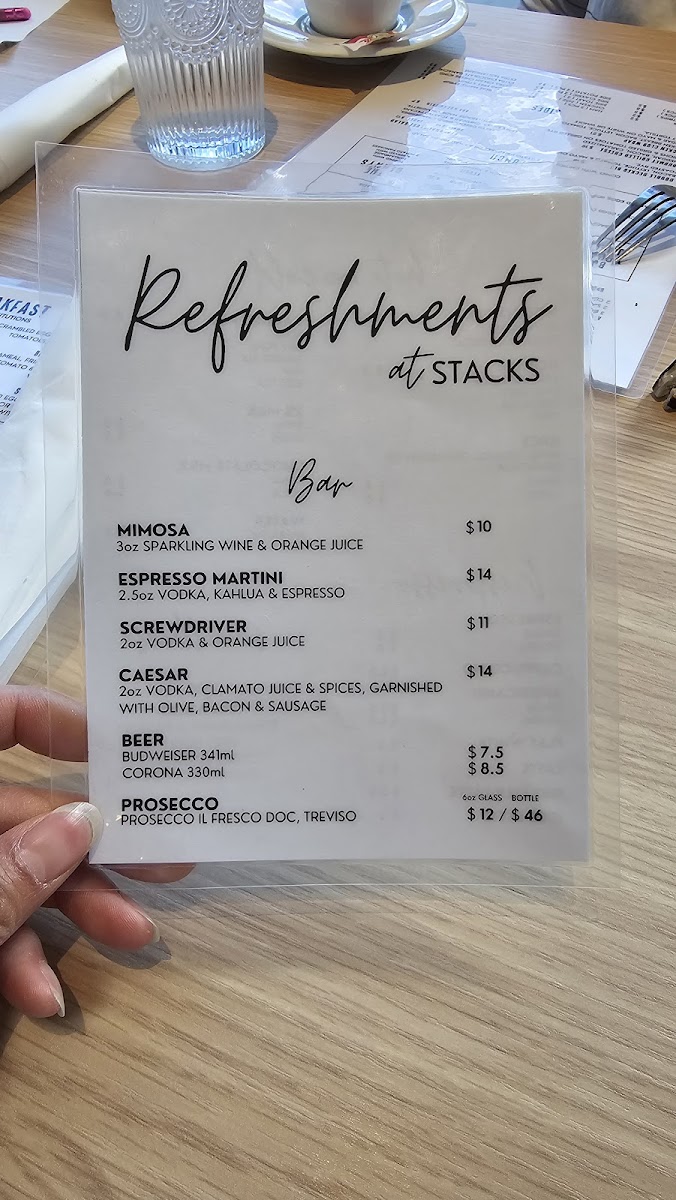 Refreshments
at STACKS
Bar
MIMOSA $10
3oz SPARKLING WINE & ORANGE JUICE
ESPRESSO MARTINI $14
2.5oz VODKA, KAHLUA & ESPRESSO
SCREWDRIVER $11
2oz VODKA & ORANGE JUICE
CAESAR $14
2oz VODKA, CLAMATO JUICE & SPICES, GARNISHED
WITH OLIVE, BACON & SAUSAGE
BEER
BUDWEISER 341ml $7.5
CORONA 330ml $8.5
PROSECCO 6oz GLASS BOTTLE
PROSECCO IL FRESCO DOC, TREVISO $12 / $46
SIDES